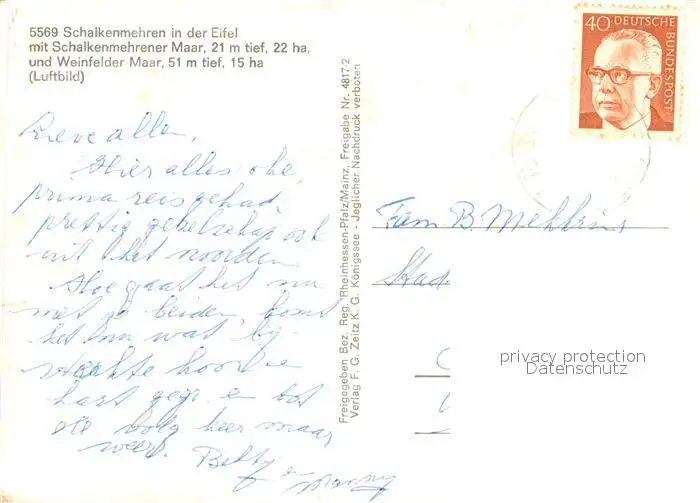 5569 Schalkenmehren in der Eifel
mit Schalkenmehrener Maar, 21 m tief, 22 ha,
und Weinfelder Maar, 51 m tief, 15 ha
(Luftbild)
Lieve allen,
Hier alles oke,
prima reis gehad,
prettig gezelschap ook
uit het noorden
Hoe gaat het nu
met beiden, komt
het nu wat bij
hoor
hart en tot
de volg keer maar
weer. Betty
en
Freigegeben Bez. Reg. Rheinhessen-Pfalz/Mainz, Freigabe Nr. 4817-2
Verlag F. G. Zeitz K. G. Königssee - Jeglicher Nachdruck verboten
40 DEUTSCHE BUNDESPOST
Fam B.
Stad
privacy protection
Datenschutz